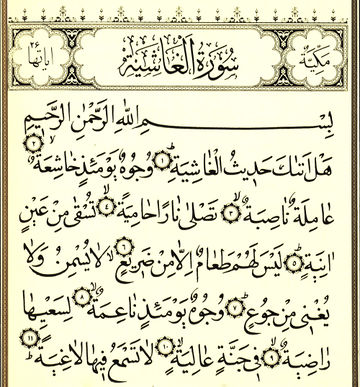 مكية سُورَةُ الْغَاشِيَةِ اياتها ٢٦
بِسْمِ اللهِ الرَّحْمٰنِ الرَّحِيمِ
هَلْ اَتٰيكَ حَدِيثُ الْغَاشِيَةِۜ ١ وُجُوهٌ يَوْمَئِذٍ خَاشِعَةٌۙ ٢
عَامِلَةٌ نَاصِبَةٌۙ ٣ تَصْلٰى نَارًا حَامِيَةًۙ ٤ تُسْقٰى مِنْ عَيْنٍ
اٰنِيَةٍۜ ٥ لَيْسَ لَهُمْ طَعَامٌ اِلَّا مِنْ ضَرِيعٍۙ ٦ لَا يُسْمِنُ وَلَا
يُغْنِي مِنْ جُوعٍۜ ٧ وُجُوهٌ يَوْمَئِذٍ نَاعِمَةٌۙ ٨ لِسَعْيِهَا
رَاضِيَةٌۙ ٩ فِي جَنَّةٍ عَالِيَةٍۙ ١٠ لَا تَسْمَعُ فِيهَا لَاغِيَةًۜ ١١